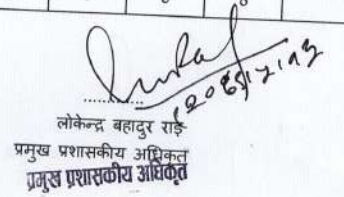 लोकेन्द्र बहादुर राई
प्रमुख प्रशासकीय अधिकृत
प्रमुख प्रशासकीय अधिकृत